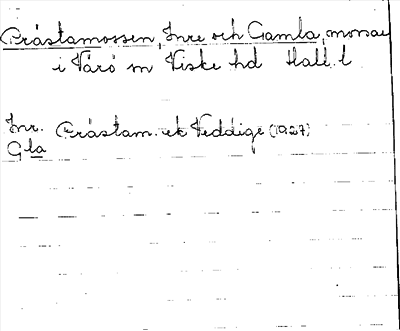 Prästamossen, Inre och Gamla, mossar
i Värö sn Viske hd Hall. l
Inr. Prästam. ek Veddige (1927)
Gla